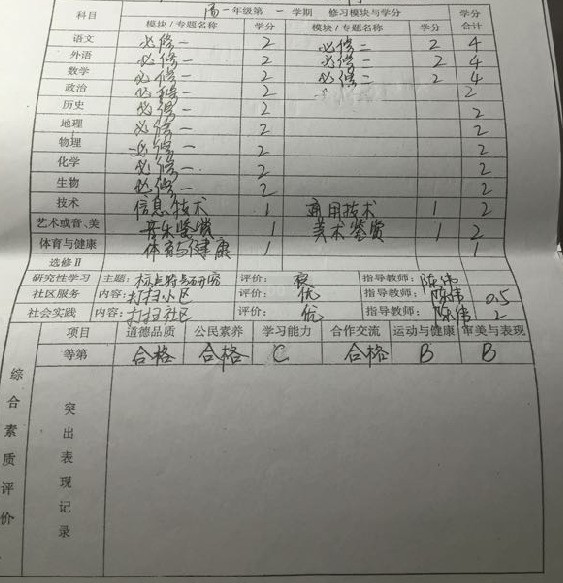 科目 高一年级第一学期 修习模块与学分 学分合计
模块/专题名称 学分 模块/专题名称 学分
语文 必修一 2 必修二 2 4
外语 必修一 2 必修二 2 4
数学 必修一 2 必修二 2 4
政治 必修一 2 2
历史 必修一 2 2
地理 必修一 2 2
物理 必修一 2 2
化学 必修一 2 2
生物 必修一 2 2
技术 信息技术 1 通用技术 1 2
艺术或音、美 音乐鉴赏 1 美术鉴赏 1 2
体育与健康 体育与健康 1 1
选修Ⅱ
研究性学习 主题: 评价: 良 指导教师: 陈伟
社区服务 内容: 打扫小区 评价: 优 指导教师: 陈伟 0.5
社会实践 内容: 打扫社区 评价: 优 指导教师: 陈伟 2
项目 道德品质 公民素养 学习能力 合作交流 运动与健康 审美与表现
等第 合格 合格 C 合格 B B
综合素质评价
突出表现记录